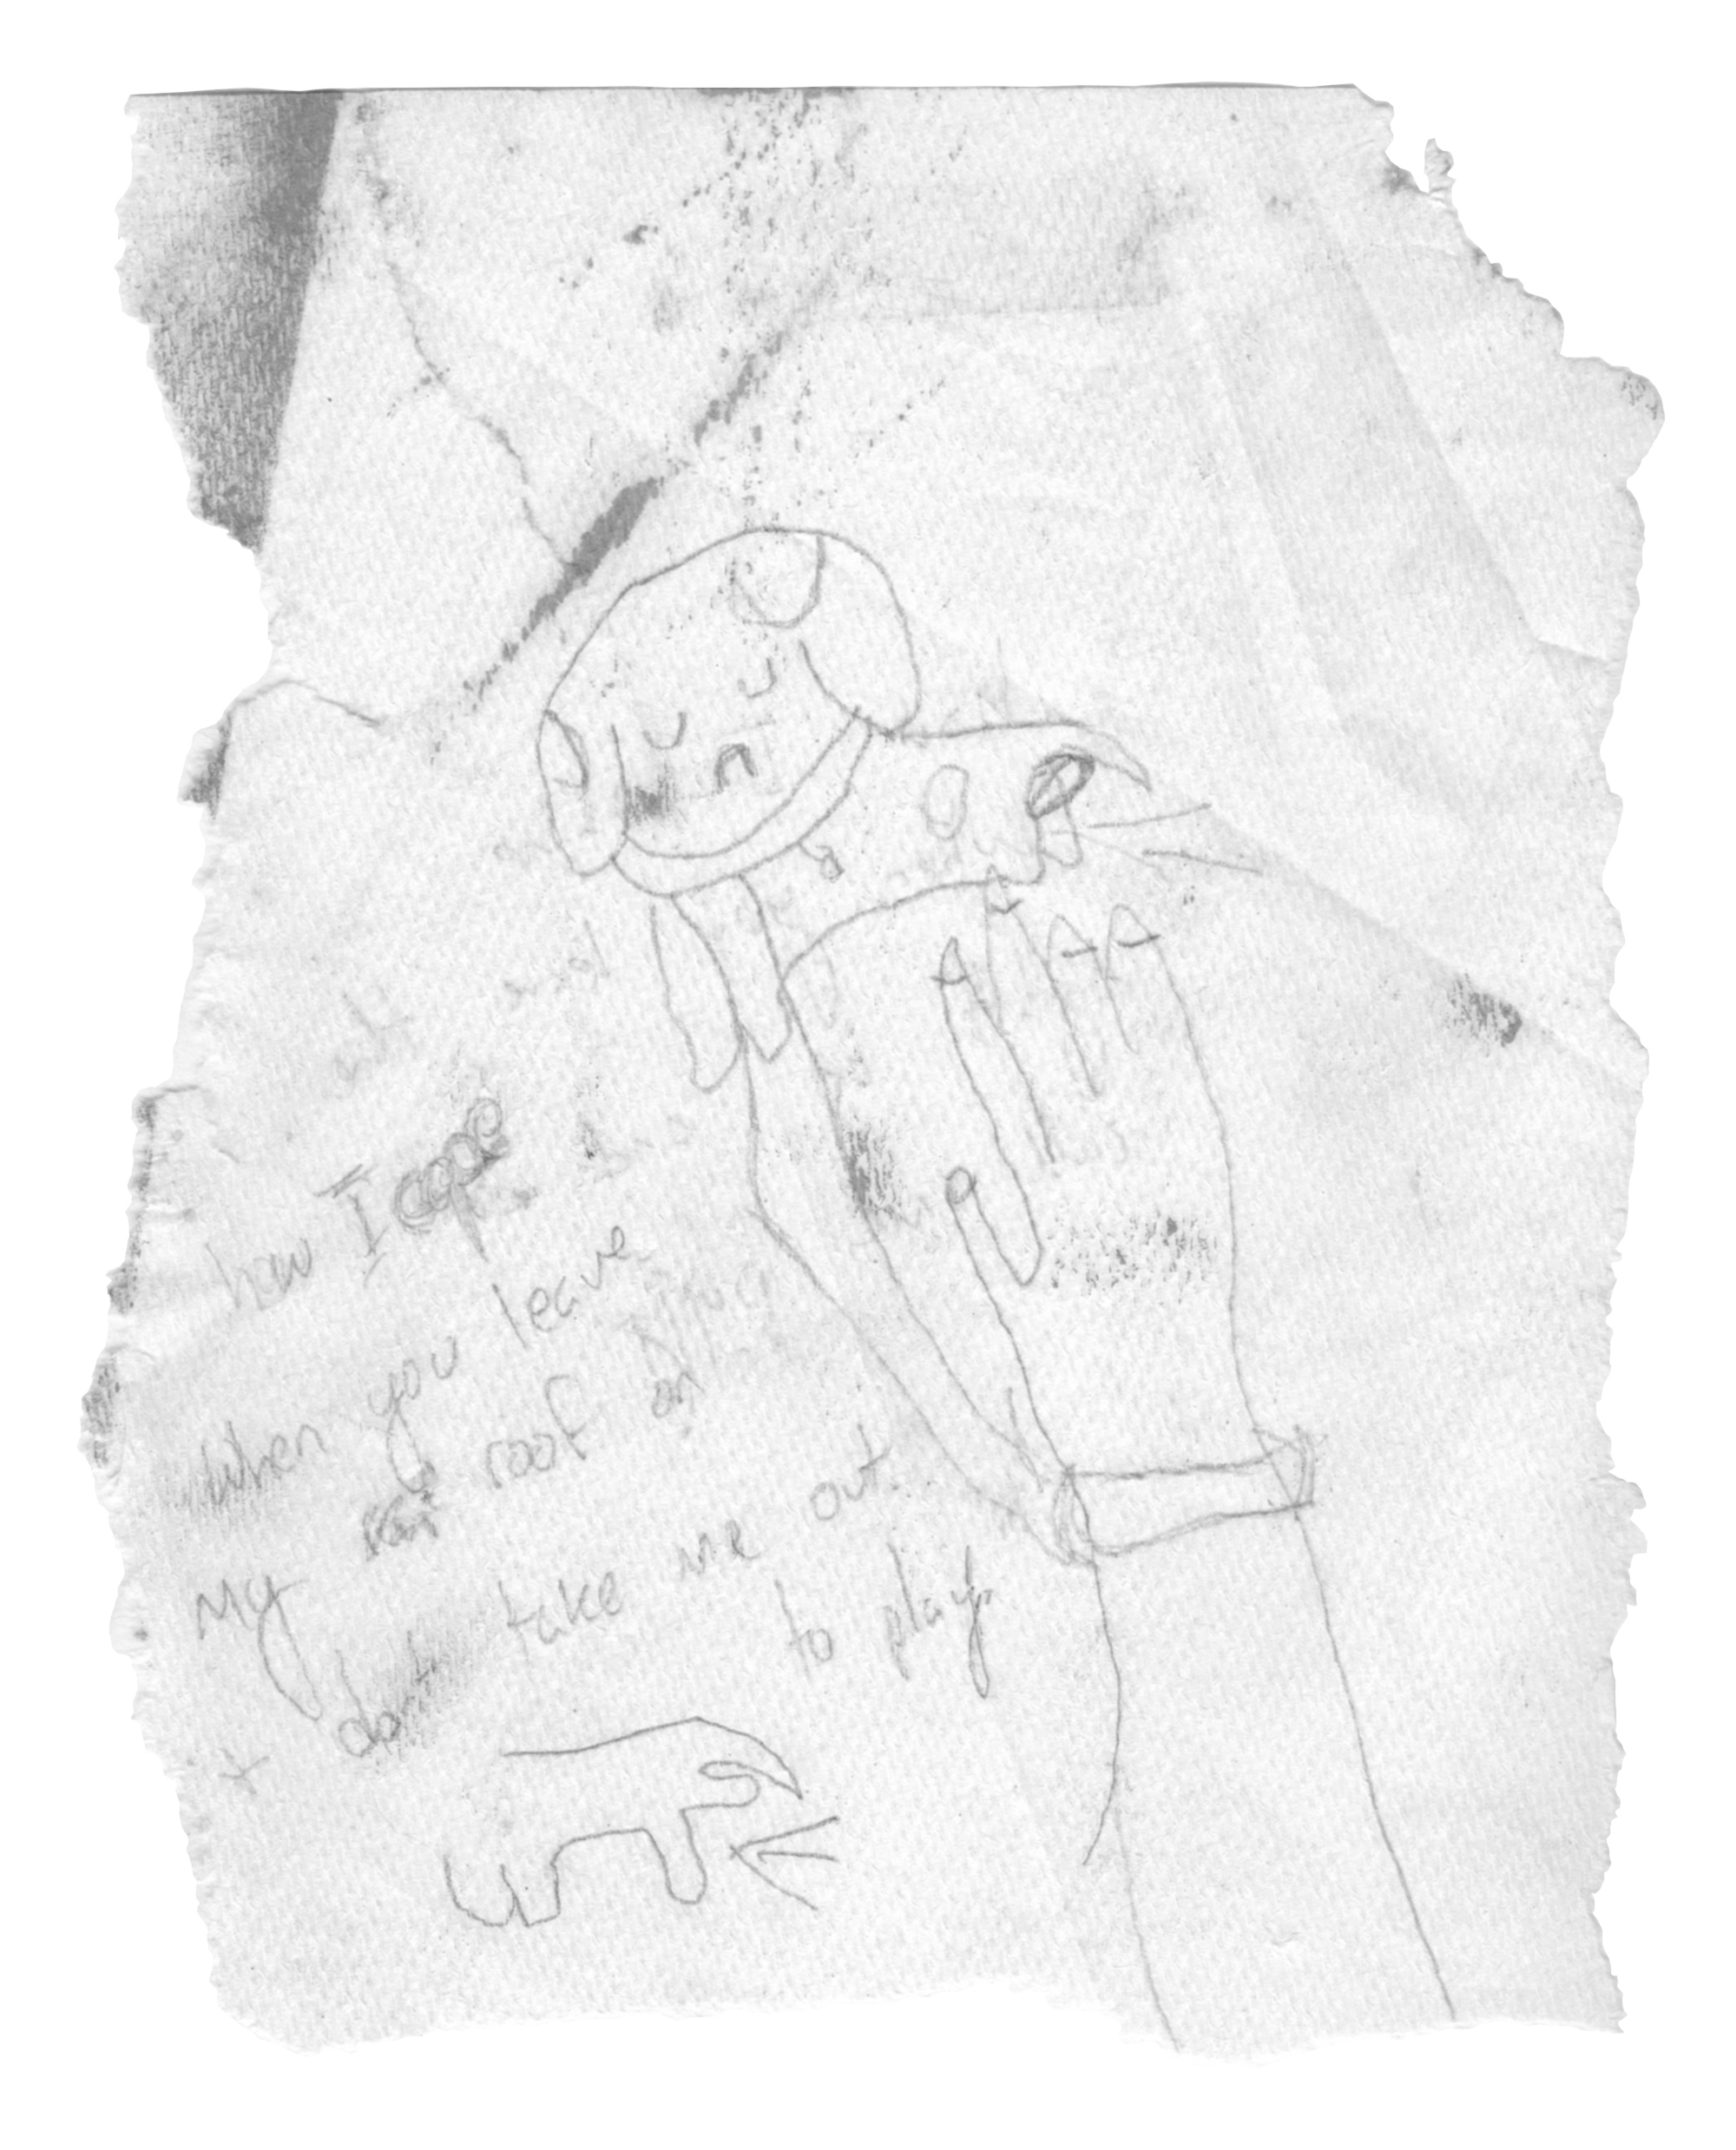 how I cope
when you leave
my roof on
+ dont take me out
to play